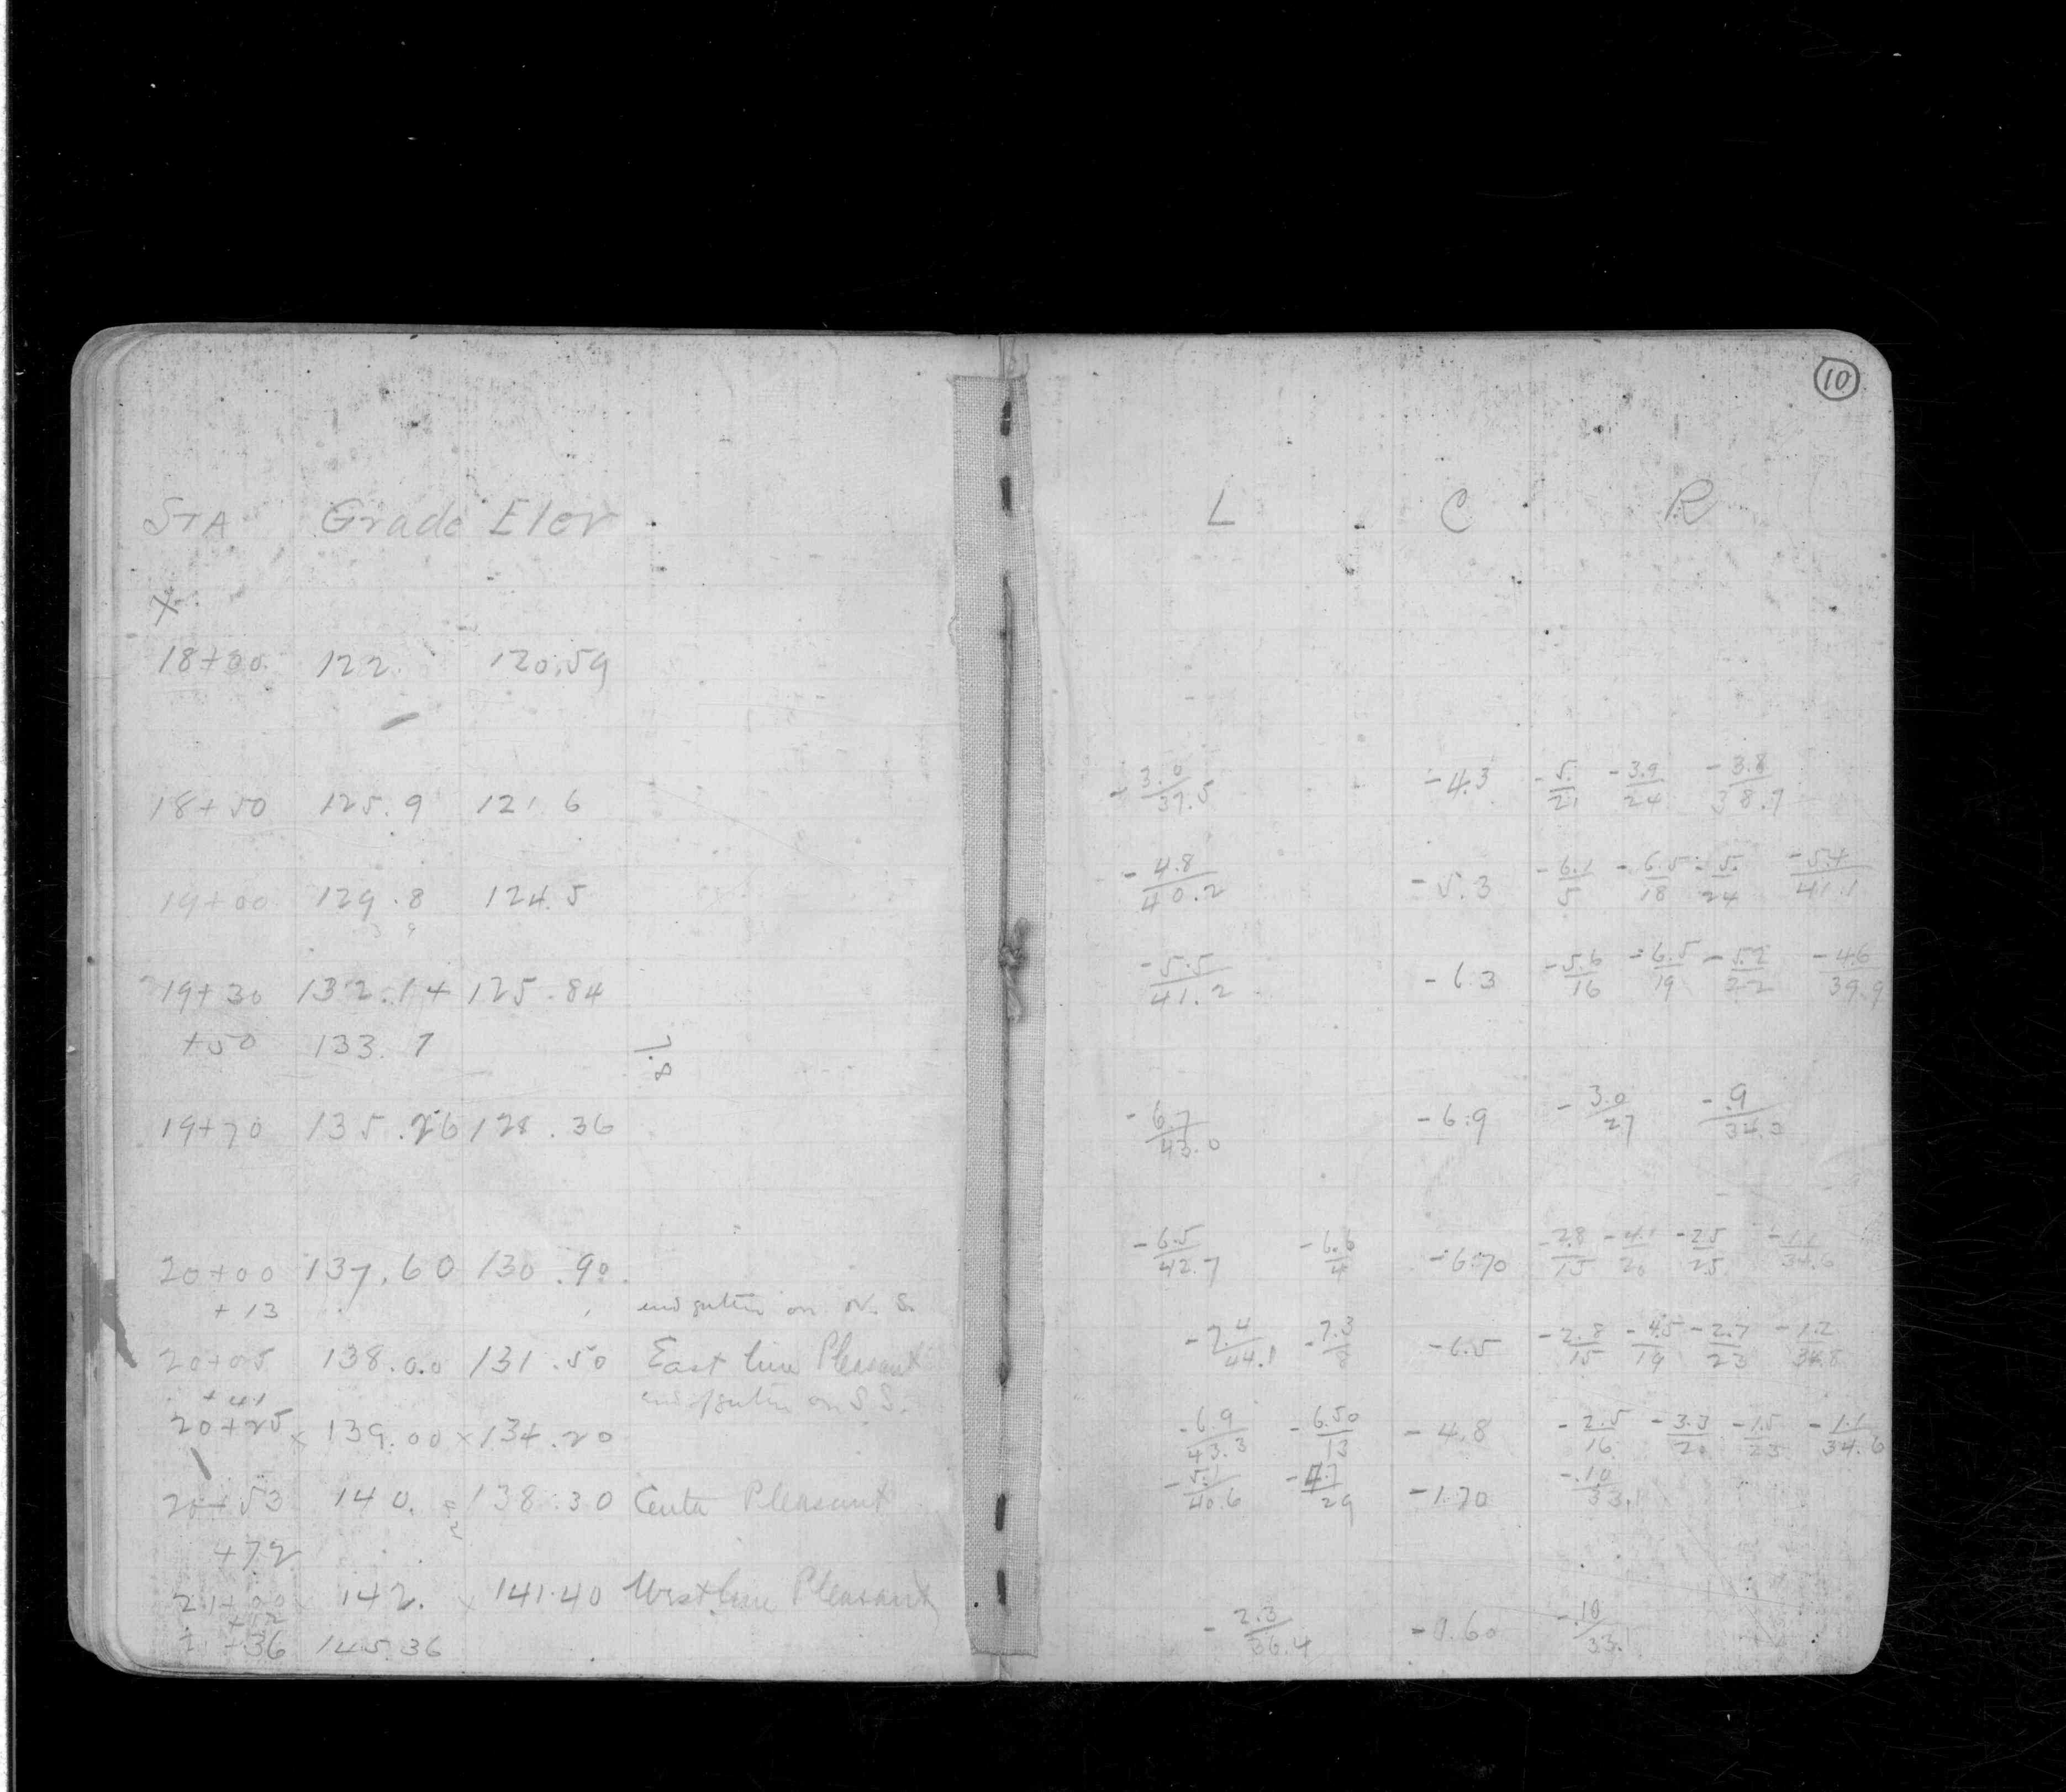 10
STA Grade Elev L C R
x
18+00 122. 120.59
18+50 125.9 121.6 -3.0/37.5 -4.3 -5./21 -3.9/24 -3.8/38.7
19+00 129.8 124.5 -4.8/40.2 -5.3 -6.1/5 -6.5/18 -5./24 -5.4/41.1
19+30 132.14 125.84 -5.5/41.2 -6.3 -5.6/16 -6.5/19 -5.2/22 -4.6/39.9
+50 133.7
19+70 135.26 128.36 -6.7/43.0 -6.9 -3.0/27 -.9/34.3
20+00 137.60 130.90 -6.5/42.7 -6.6/4 -6.70 -2.8/15 -4.1/20 -2.5/25 -1.1/34.6
+13 end gutter on N. S.
20+05 138.00 131.50 East line Pleasant -7.4/44.1 -7.3/8 -6.5 -2.8/15 -4.5/19 -2.7/23 -1.2/34.8
+41 end gutter on S S.
20+25 x 139.00 x 134.20 -6.9/43.3 -6.50/13 -4.8 -2.5/16 -3.3/20 -1.5/23 -1.1/34.6
20+53 140. 138.30 Center Pleasant -5.1/40.6 -4.7/29 -1.70 -.10/33.1
+72
21+00 142. x 141.40 West line Pleasant -2.3/36.4 -0.60 -.10/33.1
+36 145.36